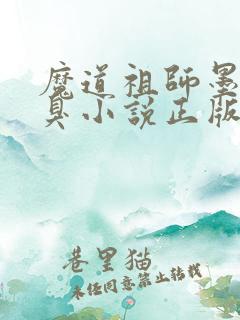 魔道祖师墨
臭小说正版
巷里猫
未经同意禁止转载